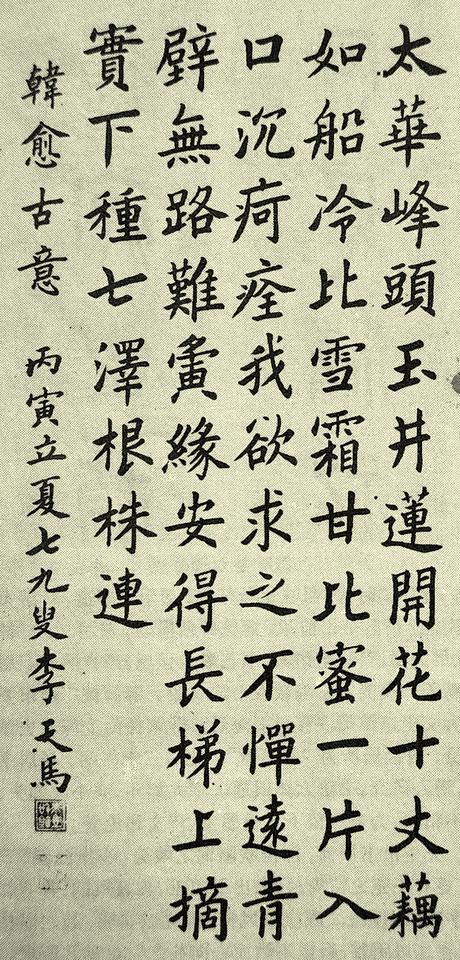 太華峰頭玉井蓮開花十丈藕
如船冷比雪霜甘比蜜一片入
口沉疴痊我欲求之不憚遠青
壁無路難夤緣安得長梯上摘
實下種七澤根株連
韓愈古意 丙寅立夏七九叟李天馬